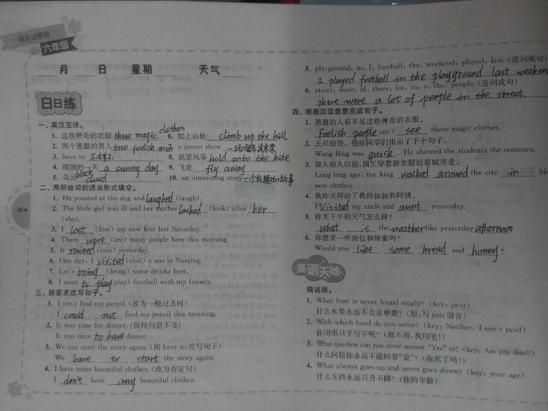 快乐过寒假
六年级
月 日 星期 天气
日日练
一、英汉互译。
1. 这些神奇的衣服 these magic clothes 6. 爬上山坡 climb up the hill
2. 两个愚蠢的男人 two foolish men
3. have to 8. 抓紧风筝 hold onto the kite
4. 晴朗的一天 a sunny day 9. 飞走 fly away
5. black cloud 10. an interesting story 一个有趣的故事
二、用所给词的适当形式填空。
1. He pointed at the dog and laughed (laugh).
2. The little girl was ill and her mother looked (look) after her
(she).
3. I lost (lose) my new kite last Saturday.
4. There were (are) many people here this morning.
5. It rained (rain) yesterday.
6. One day, I visited (visit) a zoo in Nanjing.
7. Let's bring (bring) some drinks here.
8. I want to play (play) football with my friends.
三、按要求改写句子。
1. I can't find my pencil. (改为一般过去时)
I could not find my pencil this morning.
2. It was time for dinner. (保持句意不变)
It was time to have dinner.
3. We can start the story again. (用 have to 改写句子)
We have to start the story again.
4. I have some beautiful clothes. (改为否定句)
I don't have any beautiful clothes.
5. playground, in, I, football, the, weekend, played, last (连词成句)
I played football in the playground last weekend
6. street, were, of, there, lot, in, a, the, people (连词成句)
There were a lot of people in the street.
四、根据汉语意思完成句子。
1. 愚蠢的人看不见这些神奇的衣服。
Foolish people can't see these magic clothes.
2. 王兵很快,他给同学们出示了下个句子。
Wang Bing was quick. He showed the students the sentence.
3. 很久很久以前,国王穿着新衣服沿着城市走。
Long long ago, the king walked around the city in his
new clothes.
4. 我昨天拜访了我的叔叔和阿姨。
I visited my uncle and aunt yesterday.
5. 昨天下午的天气怎么样?
what is the weather like yesterday afternoon
6. 你想要一些面包和蜂蜜吗?
Would you like some bread and honey?
英语天地
猜谜语。
1. What fruit is never found singly? (key: pear)
什么水果永远不会是单数?(梨,与 pair 谐音)
2. With which hand do you write? (key: Neither, I use a pen!)
你用那只手写字呢?(都不用,我用笔!)
3. What question can you never answer "Yes" to? (key: Are you dead?)
什么问题你永远不能回答"是"?(你死了吗?)
4. What always goes up and never goes down? (key: your age)
什么东西永远只升不降?(你的年龄)